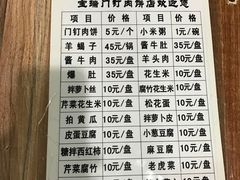 宝瑞门钉肉饼店欢迎您
项目 价格 项目 价格
门钉肉饼 5元/个 小米粥 1元/碗
羊蝎子 45元/锅 酱牛肚 35元/盘
酱牛肉 35元/盘 羊头肉 30元/盘
爆肚 35元/盘 花生米 10元/盘
拌萝卜丝 10元/盘 腐竹 10元/盘
芹菜花生米 10元/盘 松花蛋 10元/盘
拍黄瓜 10元/盘 拌萝卜皮 10元/盘
皮蛋豆腐 10元/盘 小葱豆腐 10元/盘
糖拌西红柿 10元/盘 麻豆腐 10元/盘
芹菜腐竹 10元/盘 老虎菜 10元/盘